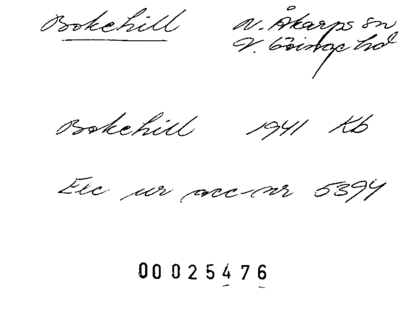 Bokehill N. Åkarps sn
V. Göinge hd
Bokehill 1941 Kb
Exc ur acc-nr 5394
00025476